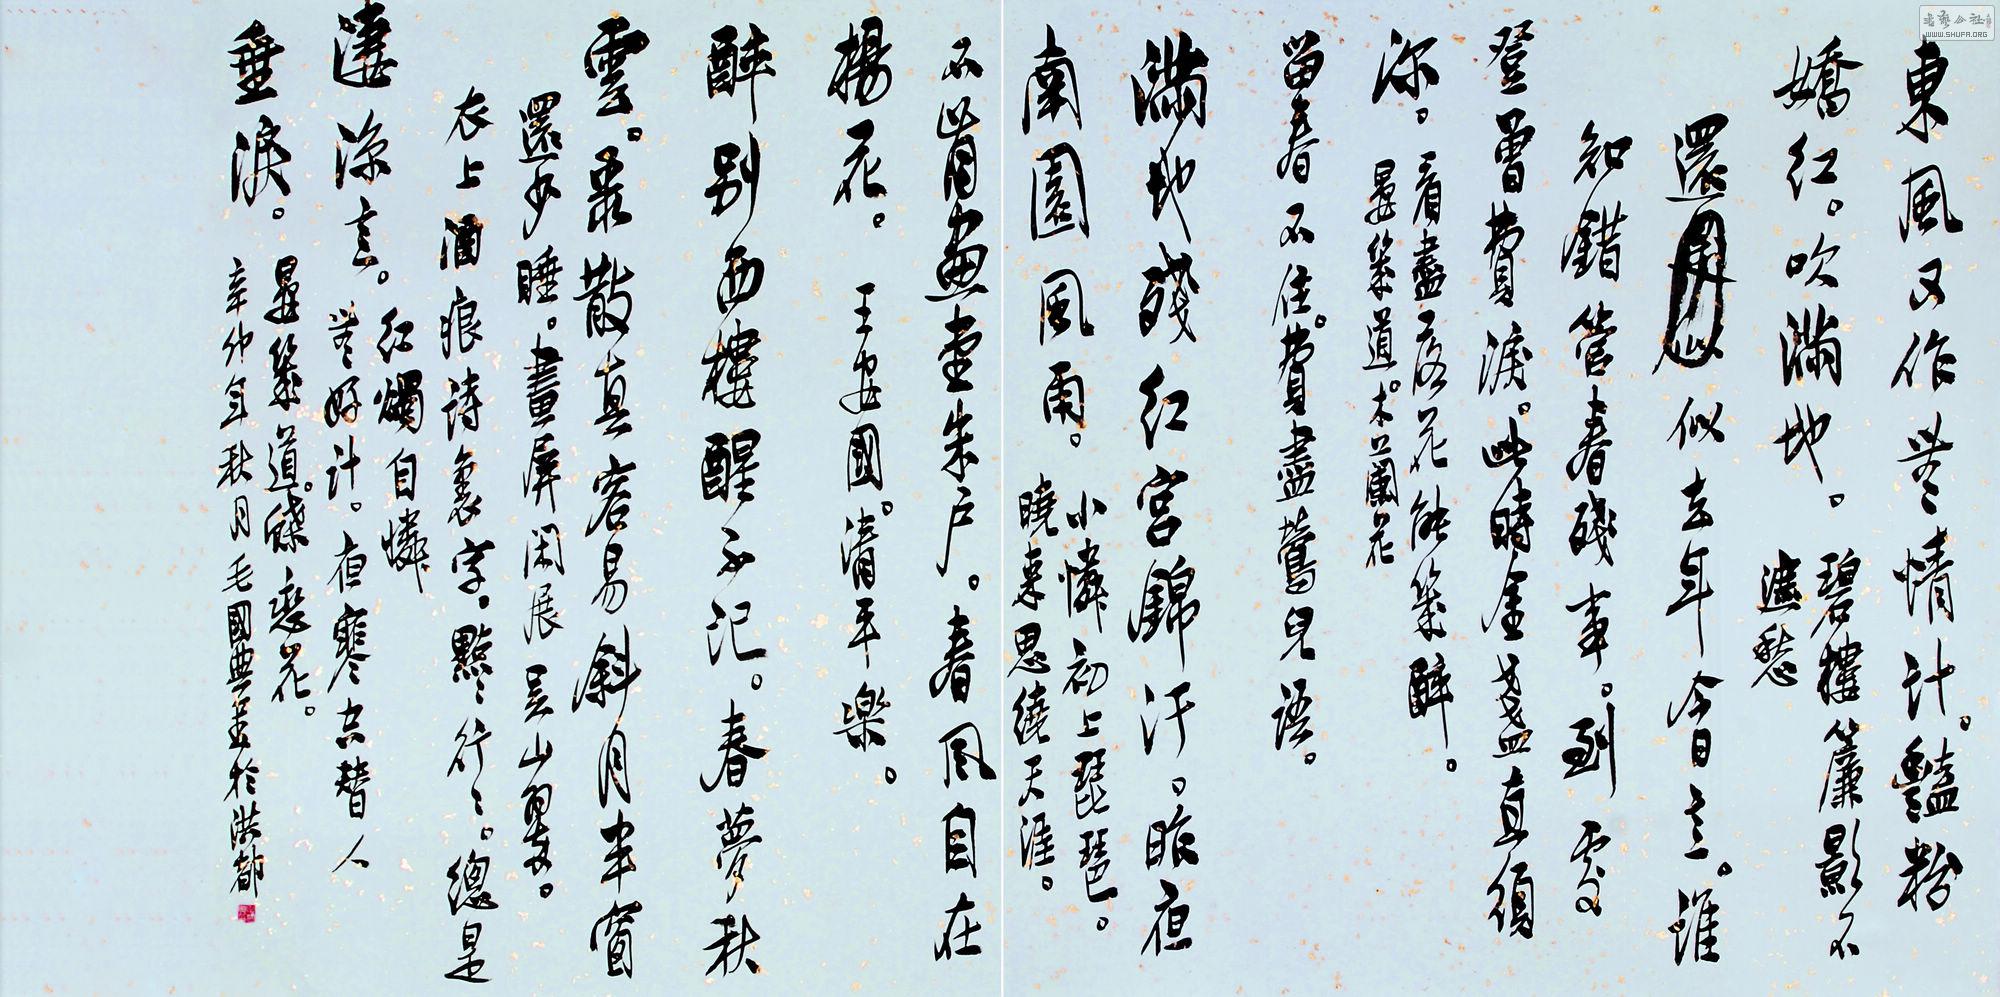 東風又作無情計。豔粉
嬌紅。吹滿地。
碧樓簾影不
遮愁
還似去年今日意。誰
知錯管春殘事。到處
登曾費淚。此時金盞直須
深。
看盡落花能幾醉。
晏幾道。木蘭花
留春不住。費盡鶯兒語。
滿地殘紅宮錦汙。昨夜
南園風雨。
小憐初上琵琶。
曉來思繞天涯。
不肯畫堂朱戶。春風自在
楊花。王安國。清平樂。
醉別西樓醒不記。春夢秋
雲。聚散真容易斜月半窗
還少睡。畫屏閑展吳山翠。
衣上酒痕詩裏字。點點行行。總是
淒涼意。
紅燭自憐
無好計。夜寒空替人
垂淚。
晏幾道。蝶戀花。
辛卯年秋月毛國典書於洪都
書藝公社
WWW.SHUFA.ORG